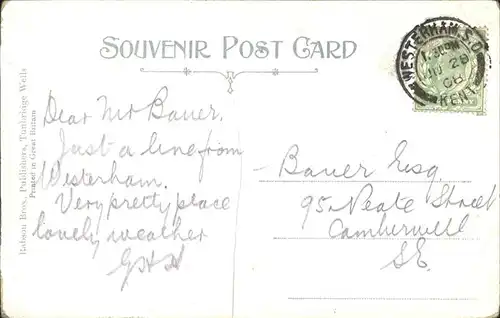 SOUVENIR POST CARD
Rabson Bros., Publishers, Tunbridge Wells
Printed in Great Britain
Dear Mr Bauer.
Just a line from
Westerham.
Very pretty place
lovely weather
Bauer Esq.
95 Neate Street
Camberwell
S.E.
WESTERHAM S.O.
KENT
28